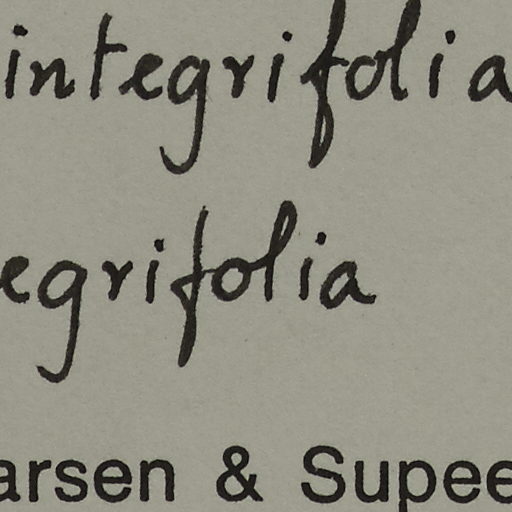 integrifolia
egrifolia
arsen & Supee